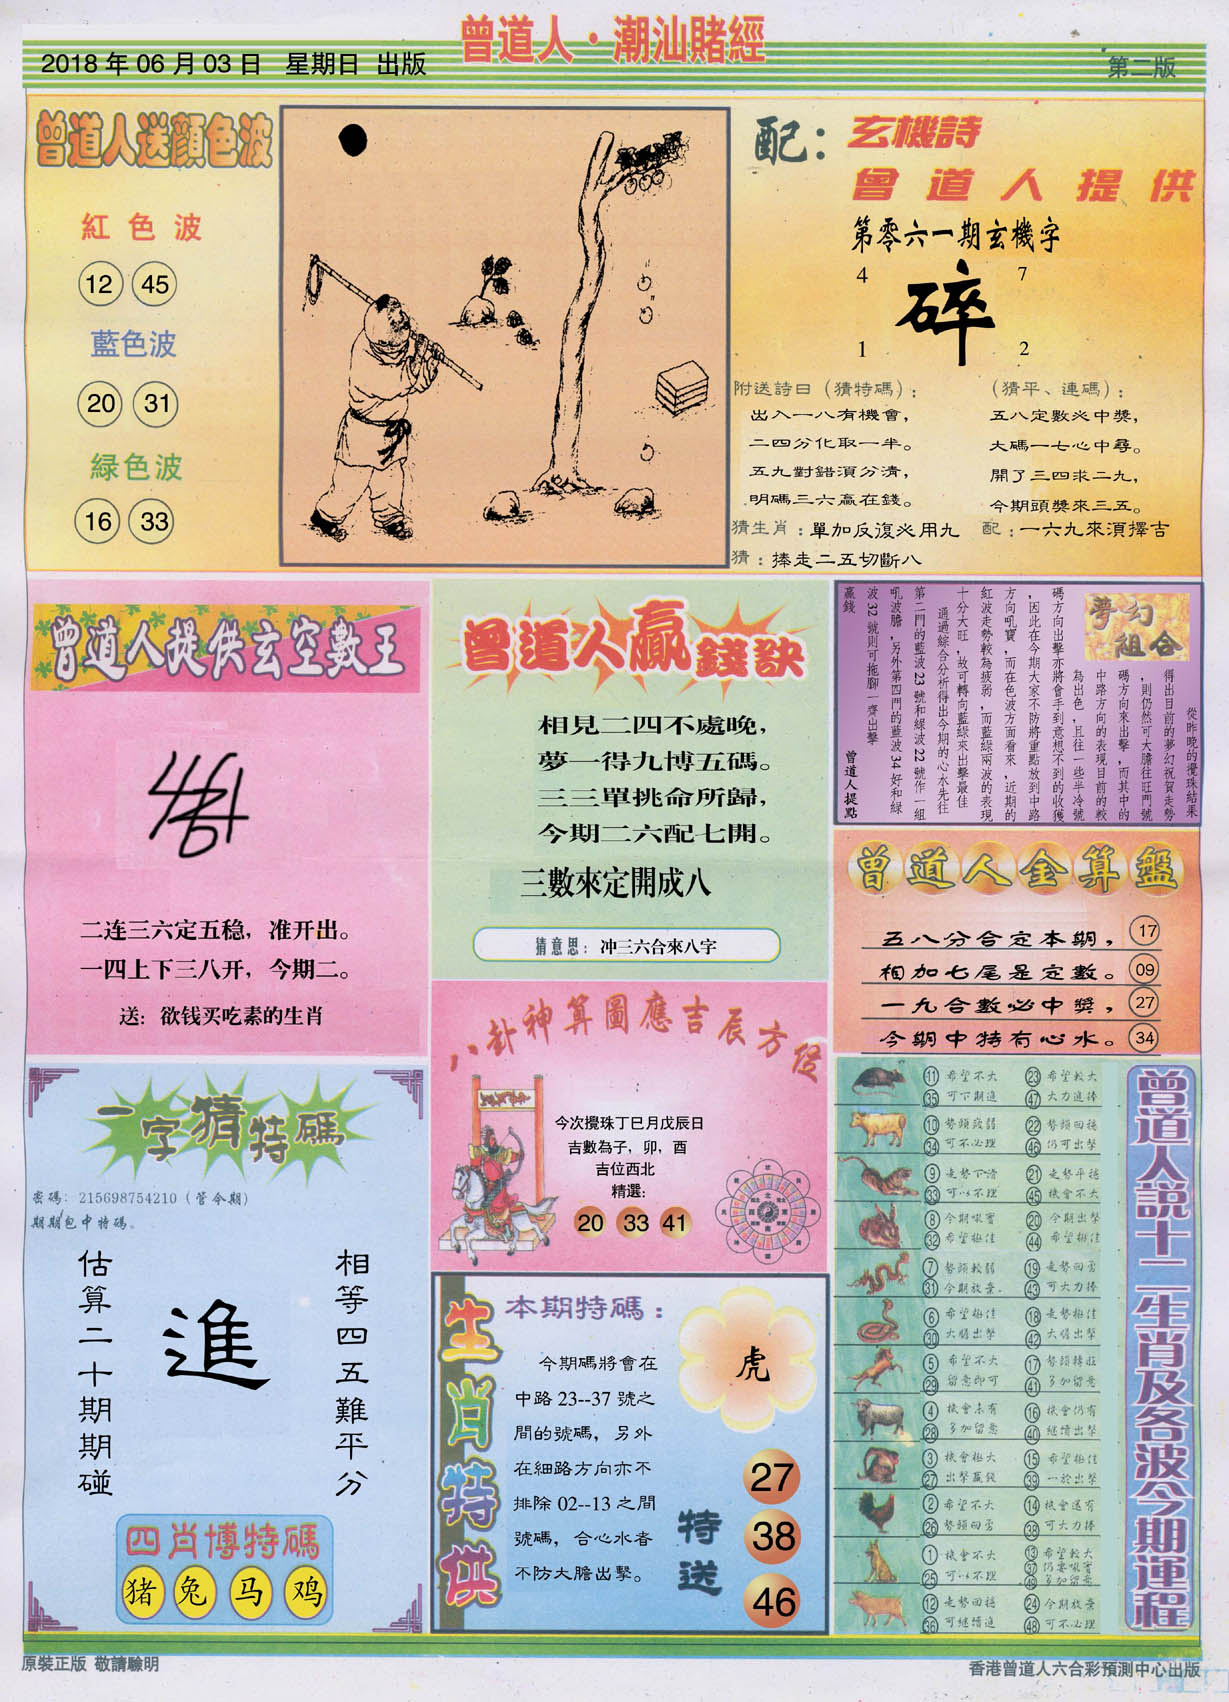 曾道人·潮汕賭經
2018 年 06 月 03 日 星期日 出版
第二版
曾道人送顏色波
紅色波
12 45
藍色波
20 31
緑色波
16 33
配：玄機詩
曾道人提供
第零六一期玄機字
4 7
碎
1 2
附送詩曰（猜特碼）：
出入一八有機會，
二四分化取一半。
五九對錯須分清，
明碼三六贏在錢。
（猜平、連碼）：
五八定數必中獎，
大碼一七心中尋。
開了三四求二九，
今期頭獎來三五。
猜生肖：單加反復必用九
配：一六九來須擇吉
猜：捧走二五切斷八
曾道人提供玄空數王
二连三六定五稳，准开出。
一四上下三八开，今期二。
送：欲钱买吃素的生肖
曾道人贏錢訣
相見二四不處晚，
夢一得九博五碼。
三三單挑命所歸，
今期二六配七開。
三數來定開成八
猜意思：冲三六合來八字
夢幻
組合
從昨晚的攪珠結果
得出目前的夢幻祝賀走勢
，則仍然可大膽往旺門號
碼方向來出擊，而其中的
中路方向的表現目前的較
為出色，且往一些半冷號
碼方向出擊亦將會手到意想不到的收獲
，因此在今期大家不防將重點放到中路
方向吼寶，而在色波方面看來，近期的
紅波走勢較為疲弱，而藍綠兩波的表現
十分大旺，故可轉向藍綠來出擊最佳
通過綜合分析得出今期的心水先往
第二門的藍波 23 號和綠波 22 號作一組
吼波膽，另外第四門的藍波 34 好和綠
波 32 號則可拖腳一齊出擊
贏錢
曾道人提點
曾道人金算盤
五八分合定本期， 17
相加七尾是定數。 09
一九合數必中獎， 27
今期中特有心水。 34
八卦神算圖應吉辰方位
今次攪珠丁巳月戊辰日
吉數為子，卯，酉
吉位西北
精選：
20 33 41
一字猜特碼
密碼：215698754210（管今期）
期期包中特碼。
相等四五難平分
進
估算二十期期碰
四肖博特碼
猪 兔 马 鸡
生肖特供
本期特碼：
今期碼將會在
中路 23--37 號之
間的號碼，另外
在細路方向亦不
排除 02--13 之間
號碼，合心水者
不防大膽出擊。
虎
特送
27
38
46
曾道人説十二生肖及各波今期運程
11 希望不大 23 希望較大
35 可下期進 47 大力進捧
10 勢頭疲弱 22 勢頭回穩
34 可不必理 46 仍可出擊
9 走勢下滑 21 走勢平穩
33 可以不理 45 機會不大
8 今期吼寶 20 今期出擊
32 希望極佳 44 希望極佳
7 勢頭較弱 19 走勢回勇
31 今期放棄. 43 可大力捧
6 希望極佳 18 走勢極佳
30 大膽出擊 42 大膽出擊
5 希望不大 17 勢頭轉旺
29 留意即可 41 多加留意
4 機會未有 16 機會仍有
28 多加留意 40 繼續出擊
3 機會極大 15 希望極佳
27 出擊贏錢 39 一於出擊
2 希望不大 14 機會還有
26 勢頭回勇 38 可大力捧
1 機會不大 13 希望較大
37 仍要吼寶
25 可以不理 49 多加留意
12 走勢回穩 24 今期放棄
36 可繼續進 48 可不必理
原裝正版 敬請驗明
香港曾道人六合彩預測中心出版